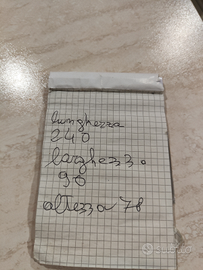 lunghezza
240
larghezza
90
altezza 78
subito